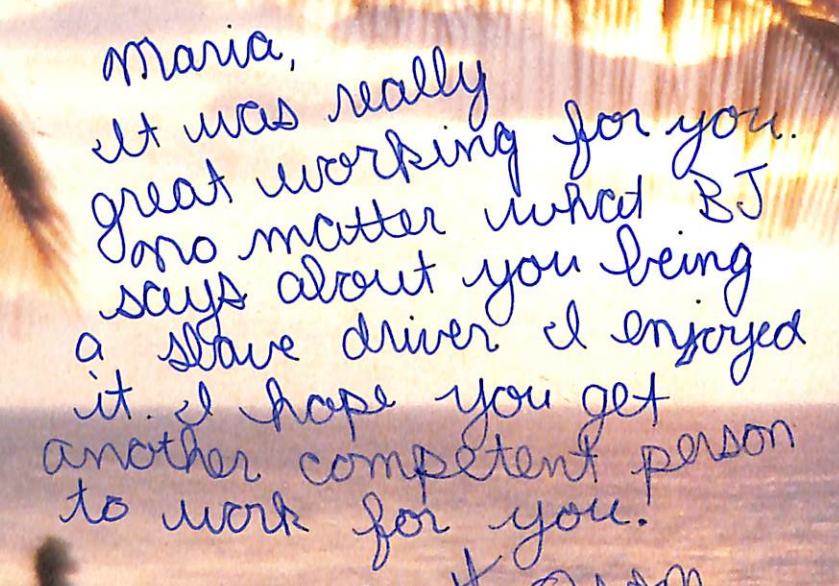 Maria,
It was really
great working for you.
No matter what BJ
says about you being
a slave driver I enjoyed
it. I hope you get
another competent person
to work for you.